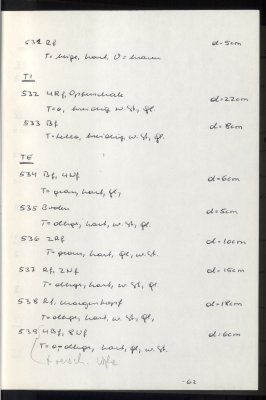 531 Rf d=5cm
T=beige, hart, Ü=braun
TI
532 4Rf, Opferschale d=22cm
T=o, breiig, w. St, gl.
533 Bf d=8cm
T=hellb, breiig, w. St, gl.
TE
534 Bf, 4Wf d=6cm
T=grau, hart, gl,
535 Boden d=5cm
T=dkgr, hart, w. St, gl.
536 2Rf d=10cm
T=grau, hart, gl, w. St.
537 Rf, 2Wf d=15cm
T=dkgr, hart, w. St, gl.
538 Rf, d=18cm
T=dkgr, hart, w. St, gl,
539 4Bf, 8Wf d=6cm
T=o-dkgr, hart, gl, w. St.
-62